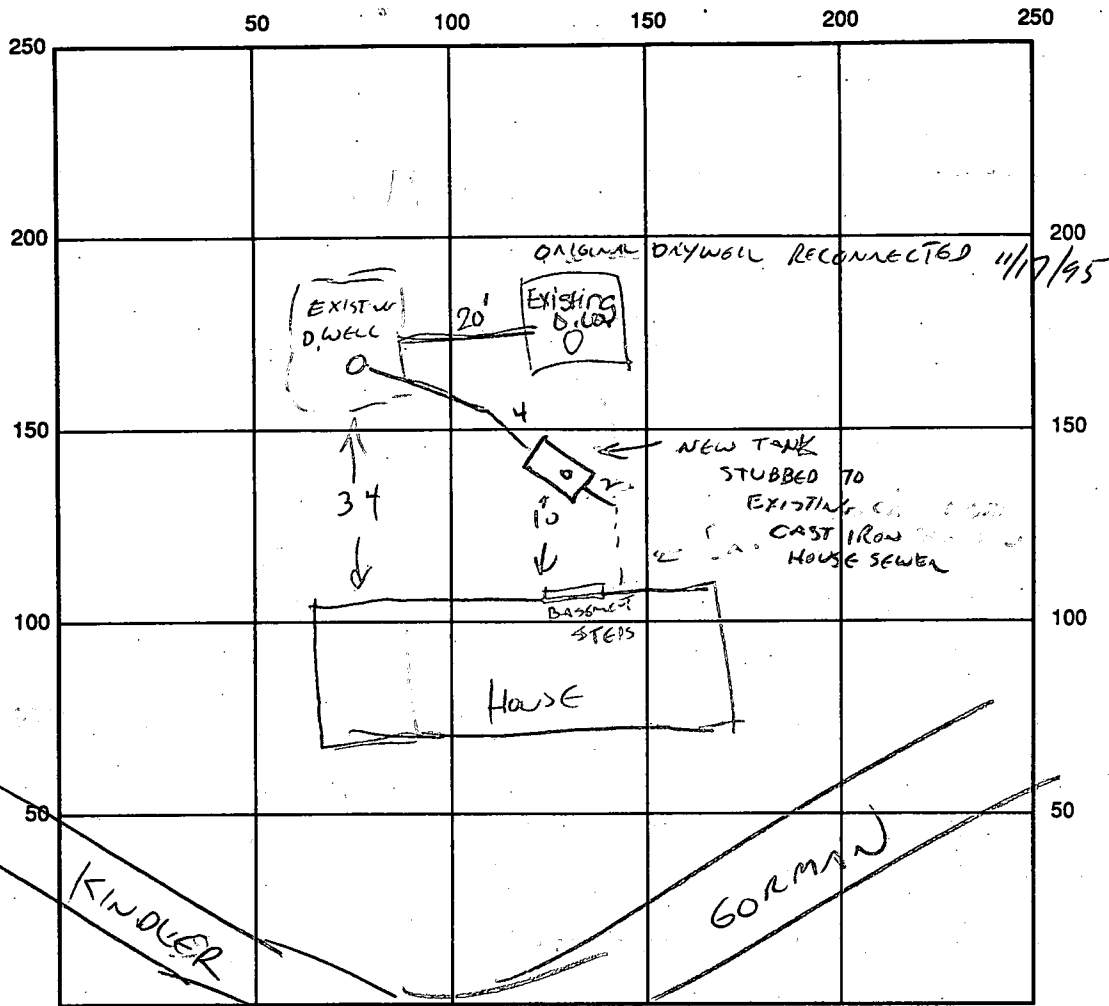 50 100 150 200 250
250
200 200
ORIGINAL DRYWELL RECONNECTED 11/17/95
EXISTING
D.WELL
20'
Existing
D.Well
150 150
4
NEW TANK
STUBBED TO
EXISTING
CAST IRON
HOUSE SEWER
2
34
10
100 100
BASEMENT
STEPS
HOUSE
50 50
KINDLER
GORMAN